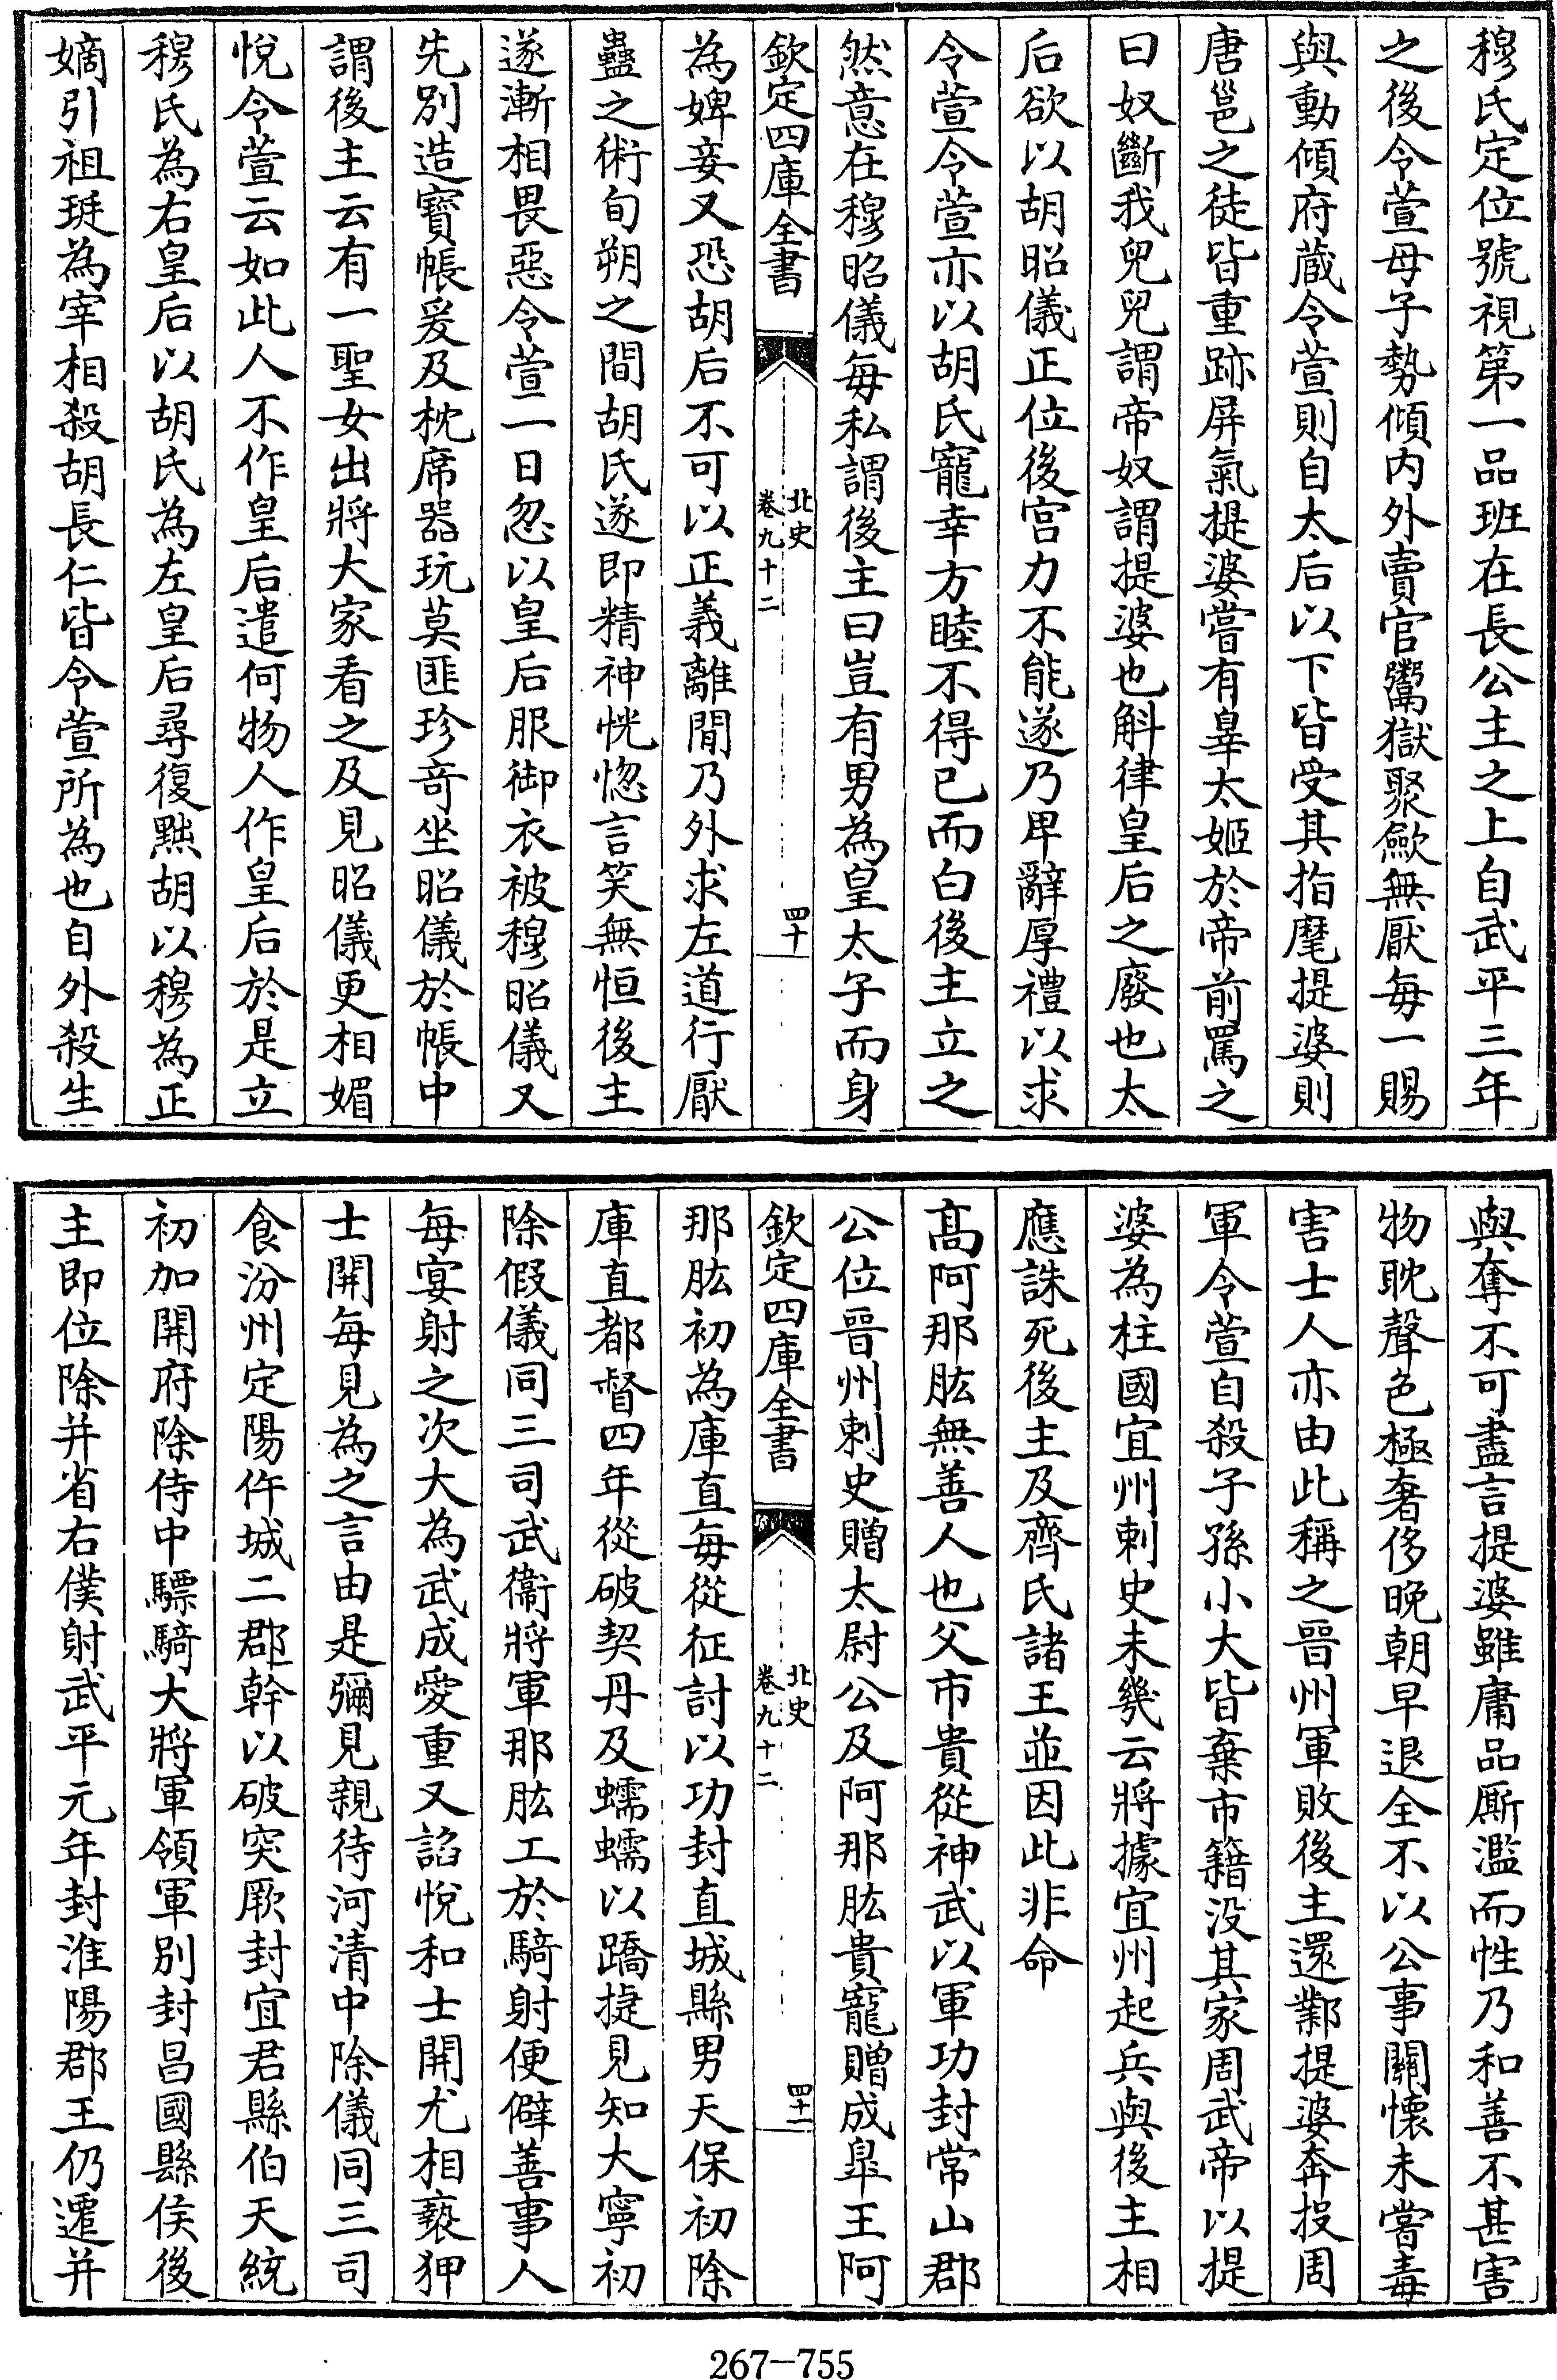 穆氏定位號視第一品班在長公主之上自武平三年
之後令萱母子勢傾内外賣官鬻獄聚歛無厭每一賜
與動傾府藏令萱則自太后以下皆受其指麾提婆則
唐邕之徒皆重跡屏氣提婆嘗有辠太姬於帝前罵之
曰奴斷我兒兒謂帝奴謂提婆也斛律皇后之廢也太
后欲以胡昭儀正位後宫力不能遂乃卑辭厚禮以求
令萱令萱亦以胡氏寵幸方睦不得已而白後主立之
然意在穆昭儀每私謂後主曰豈有男為皇太子而身
欽定四庫全書
北史
卷九十二
四十
為婢妾又恐胡后不可以正義離間乃外求左道行厭
蠱之術旬朔之間胡氏遂即精神恍惚言笑無恒後主
遂漸相畏惡令萱一日忽以皇后服御衣被穆昭儀又
先別造寳帳爰及枕席器玩莫匪珍奇坐昭儀於帳中
謂後主云有一聖女出將大家看之及見昭儀更相媚
悅令萱云如此人不作皇后遣何物人作皇后於是立
穆氏為右皇后以胡氏為左皇后尋復黜胡以穆為正
嫡引祖珽為宰相殺胡長仁皆令萱所為也自外殺生
與奪不可盡言提婆雖庸品厮濫而性乃和善不甚害
物耽聲色極奢侈晚朝早退全不以公事關懷未嘗毒
害士人亦由此稱之晉州軍敗後主還鄴提婆奔投周
軍令萱自殺子孫小大皆棄市籍没其家周武帝以提
婆為柱國宜州刺史未幾云將據宜州起兵與後主相
應誅死後主及齊氏諸王並因此非命
髙阿那肱無善人也父市貴從神武以軍功封常山郡
公位晉州刺史贈太尉公及阿那肱貴寵贈成皋王阿
欽定四庫全書
北史
卷九十二
四十一
那肱初為庫直每從征討以功封直城縣男天保初除
庫直都督四年從破契丹及蠕蠕以蹻捷見知大寧初
除假儀同三司武衞將軍那肱工於騎射便僻善事人
每宴射之次大為武成愛重又諂悅和士開尤相褻狎
士開每見為之言由是彌見親待河清中除儀同三司
食汾州定陽仵城二郡幹以破突厥封宜君縣伯天統
初加開府除侍中驃騎大將軍領軍别封昌國縣侯後
主即位除并省右僕射武平元年封淮陽郡王仍遷并
267-755